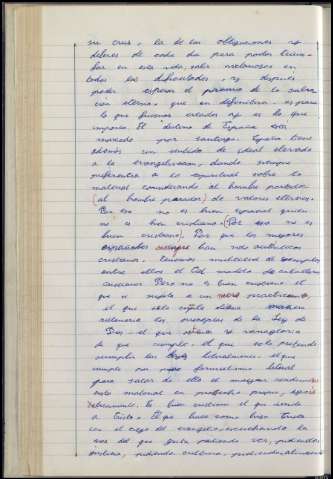 su cruz, la de las obligaciones y
deberes de cada día para poder triun-
far en esta vida, saber vencernos en
todas las dificultades, y después
poder esperar el premio de la salva-
ción eterna. que en definitiva es para
lo que fuimos creados y es lo que
importa. El destino de España está
marcado por Santiago. España tiene
además un sentido de ideal elevado
a la evangelización, dando siempre
preferencia a lo espiritual sobre lo
material considerando al hombre portador
(al hombre portador) de valores eternos.
Por eso no es buen español quien
no es buen cristiano. (Por eso no es
buen cristiano) Por que los mejores
españoles siempre han sido auténticos
cristianos. Tenemos multitud de ejemplos
entre ellos el Cid modelo de caballero
cristiano. Pero no es buen cristiano el
que se limita a un mero practicante,
el que sólo cumple
los preceptos de la ley de
Dios. el que se vanagloria
de que cumple. el que solo pretende
cumplir las leyes literalmente. el que
cumple por puro formalismo
para sacar de ello el mayor rendimien-
to material en provecho propio,
Es buen cristiano el que siente
a Cristo. El que hace como hizo Cristo
con el ciego del evangelio, escuchando la
voz del que grita pidiendo ver, pidiendo
justicia, pidiendo cultura, pidiendo